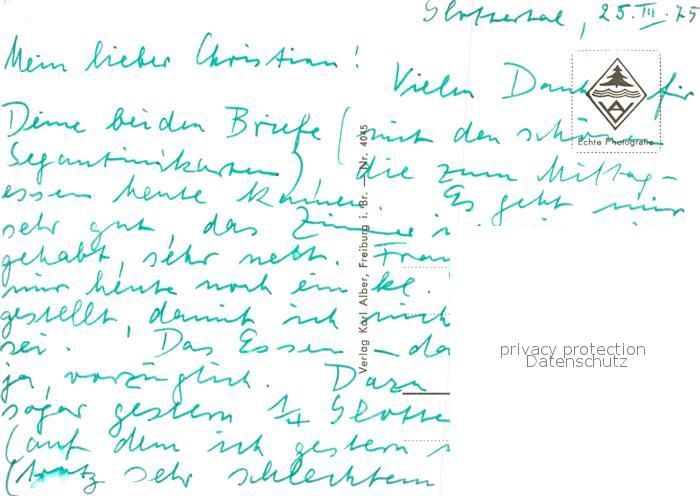 Glottertal, 25.III.75
Mein lieber Christian!
Vielen Dank für
Deine beiden Briefe (mit den schönen
Segantinikarten) die zum Mittag-
essen heute kamen. Es geht mir
sehr gut, das Zimmer
gehabt, sehr nett. Frau
mir heute noch ein kl.
gestellt, damit ich nicht
sei. Das Essen – da
ja, vorzüglich. Dazu
sogar gestern 1/4 Glotte
(auf dem ich gestern
(trotz sehr schlechtem
Echte Photografie
Verlag Karl Alber, Freiburg i. Br. — Nr. 4045
privacy protection
Datenschutz